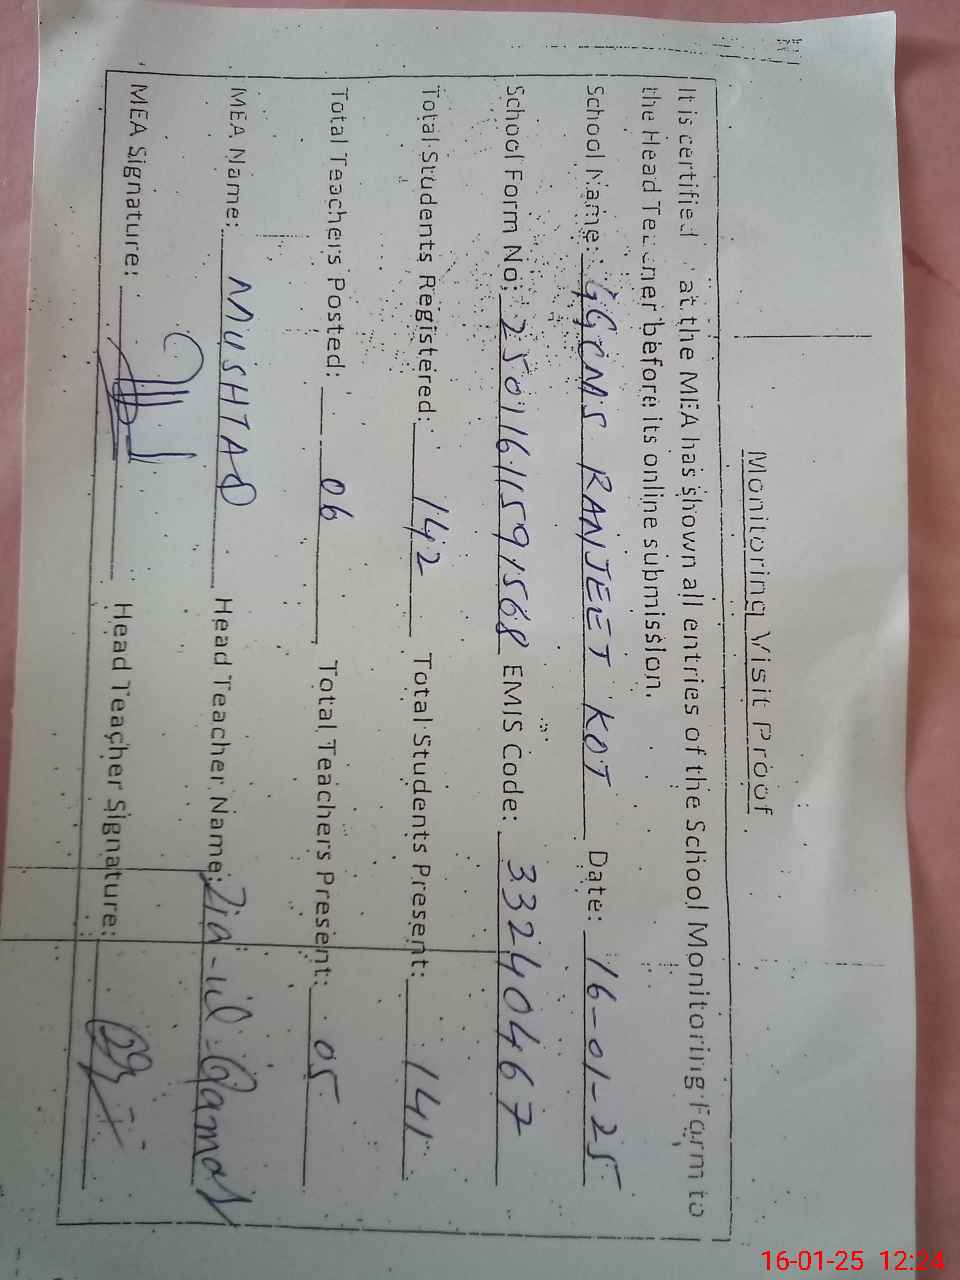 Monitoring Visit Proof
It is certified at the MEA has shown all entries of the School Monitoring Form to
the Head Teacher before its online submission.
School Name: GGCMS RANJEET KOT Date: 16-01-25
School Form No: 25011611591568 EMIS Code: 33240467
Total Students Registered: 142 Total Students Present: 141
Total Teachers Posted: 06 Total Teachers Present: 05
MEA Name: MUSHTAQ Head Teacher Name: Zia-ul-Qamar
MEA Signature: Head Teacher Signature:
16-01-25 12:24